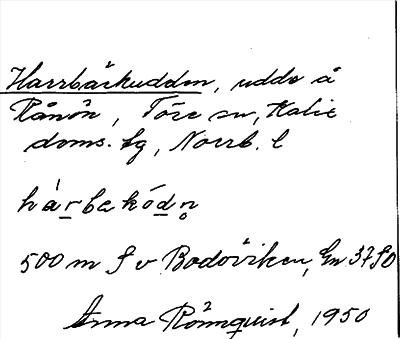 Harrbäckudden, udde å
Rånön, Töre sn, Kalix
doms. hg, Norrb. l
hárbekódn̥
500 m S v Bodöviken, En 37 SO
Anna Rönnquist, 1950